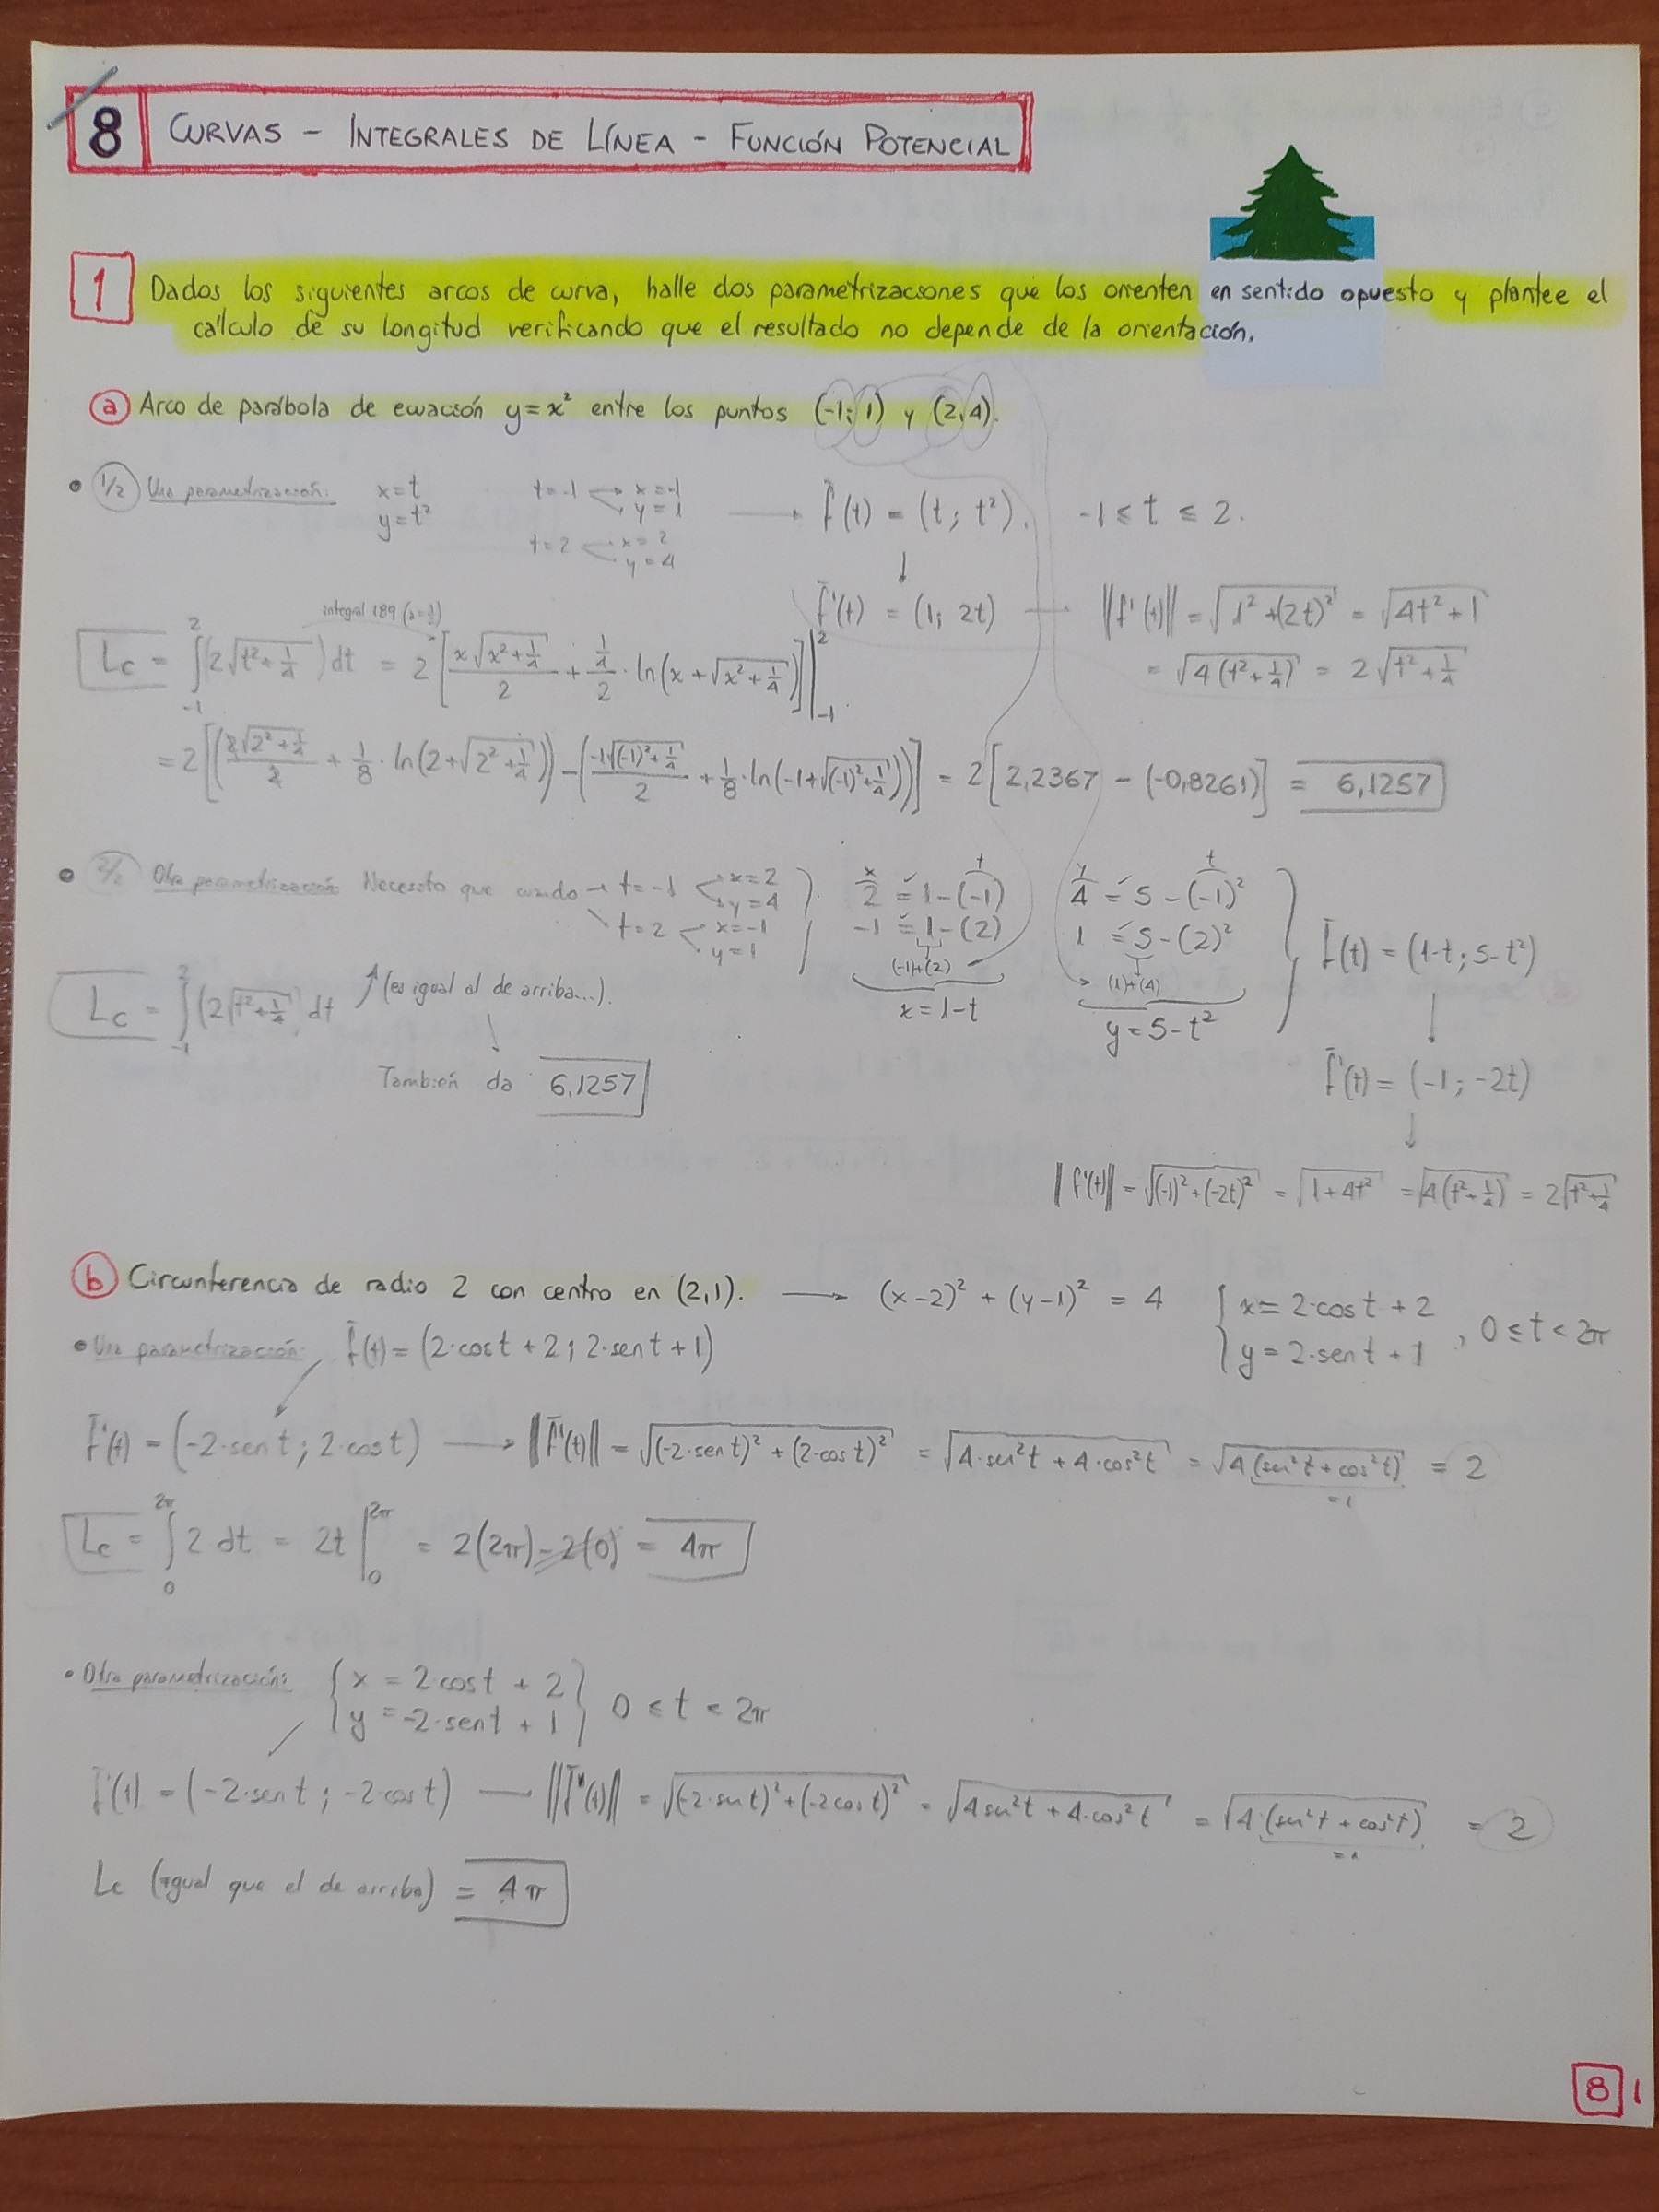 8 CURVAS - INTEGRALES DE LÍNEA - FUNCIÓN POTENCIAL
1 Dados los siguientes arcos de curva, halle dos parametrizaciones que los orienten en sentido opuesto y plantee el
cálculo de su longitud verificando que el resultado no depende de la orientación.
a Arco de parábola de ecuación y=x² entre los puntos (-1; 1) y (2, 4).
• 1/2 Una parametrización: x=t t=-1 x=-1 → f̄(t) = (t; t²). -1 ≤ t ≤ 2.
y=t² y=1
t=2 x=2
y=4
↓
integral 189 (a=½) f̄'(t) = (1; 2t) → ||f'(t)|| = √(1²+(2t)²) = √(4t²+1)
Lc = ∫₋₁² (2√(t²+¼)) dt = 2 [x√(x²+¼)/2 + ¼/2 · ln(x+√(x²+¼))] |₋₁² = √(4(t²+¼)) = 2√(t²+¼)
= 2[(2√(2²+¼)/2 + 1/8 · ln(2+√(2²+¼))) - (-1√((-1)²+¼)/2 + 1/8 · ln(-1+√((-1)²+¼)))] = 2[2,2367 - (-0,8261)] = 6,1257
• 2/2 Otra parametrización: Necesito que cuando → t=-1 x=2 x t y t
y=4 2 = 1-(-1) 4 = 5-(-1)²
t=2 x=-1 -1 = 1-(2) 1 = 5-(2)² f̄(t) = (1-t; 5-t²)
y=1 (-1)+(2) (1)+(4)
Lc = ∫₋₁² (2√(t²+¼) dt (es igual al de arriba...). x=1-t y=5-t² ↓
También da 6,1257 f̄'(t) = (-1; -2t)
↓
||f'(t)|| = √((-1)²+(-2t)²) = √(1+4t²) = √(4(t²+¼)) = 2√(t²+¼)
b Circunferencia de radio 2 con centro en (2,1). → (x-2)² + (y-1)² = 4 { x = 2·cos t + 2
y = 2·sen t + 1 , 0 ≤ t < 2π
• Una parametrización: f̄(t) = (2·cost + 2; 2·sent + 1)
f̄'(t) = (-2·sent; 2·cost) → ||f̄'(t)|| = √((-2·sent)² + (2·cost)²) = √(4·sen²t + 4·cos²t) = √(4(sen²t + cos²t)) = 2
=1
Lc = ∫₀^2π 2 dt = 2t |₀^2π = 2(2π) - 2(0) = 4π
• Otra parametrización: { x = 2·cost + 2
y = -2·sent + 1 } 0 ≤ t < 2π
f̄(t) = (-2·sent; -2·cost) — ||f̄'(t)|| = √((-2·sent)² + (-2cost)²) = √(4sen²t + 4·cos²t) = √(4·(sen²t + cos²t)) = 2
=1
Lc (igual que el de arriba) = 4π
8 1